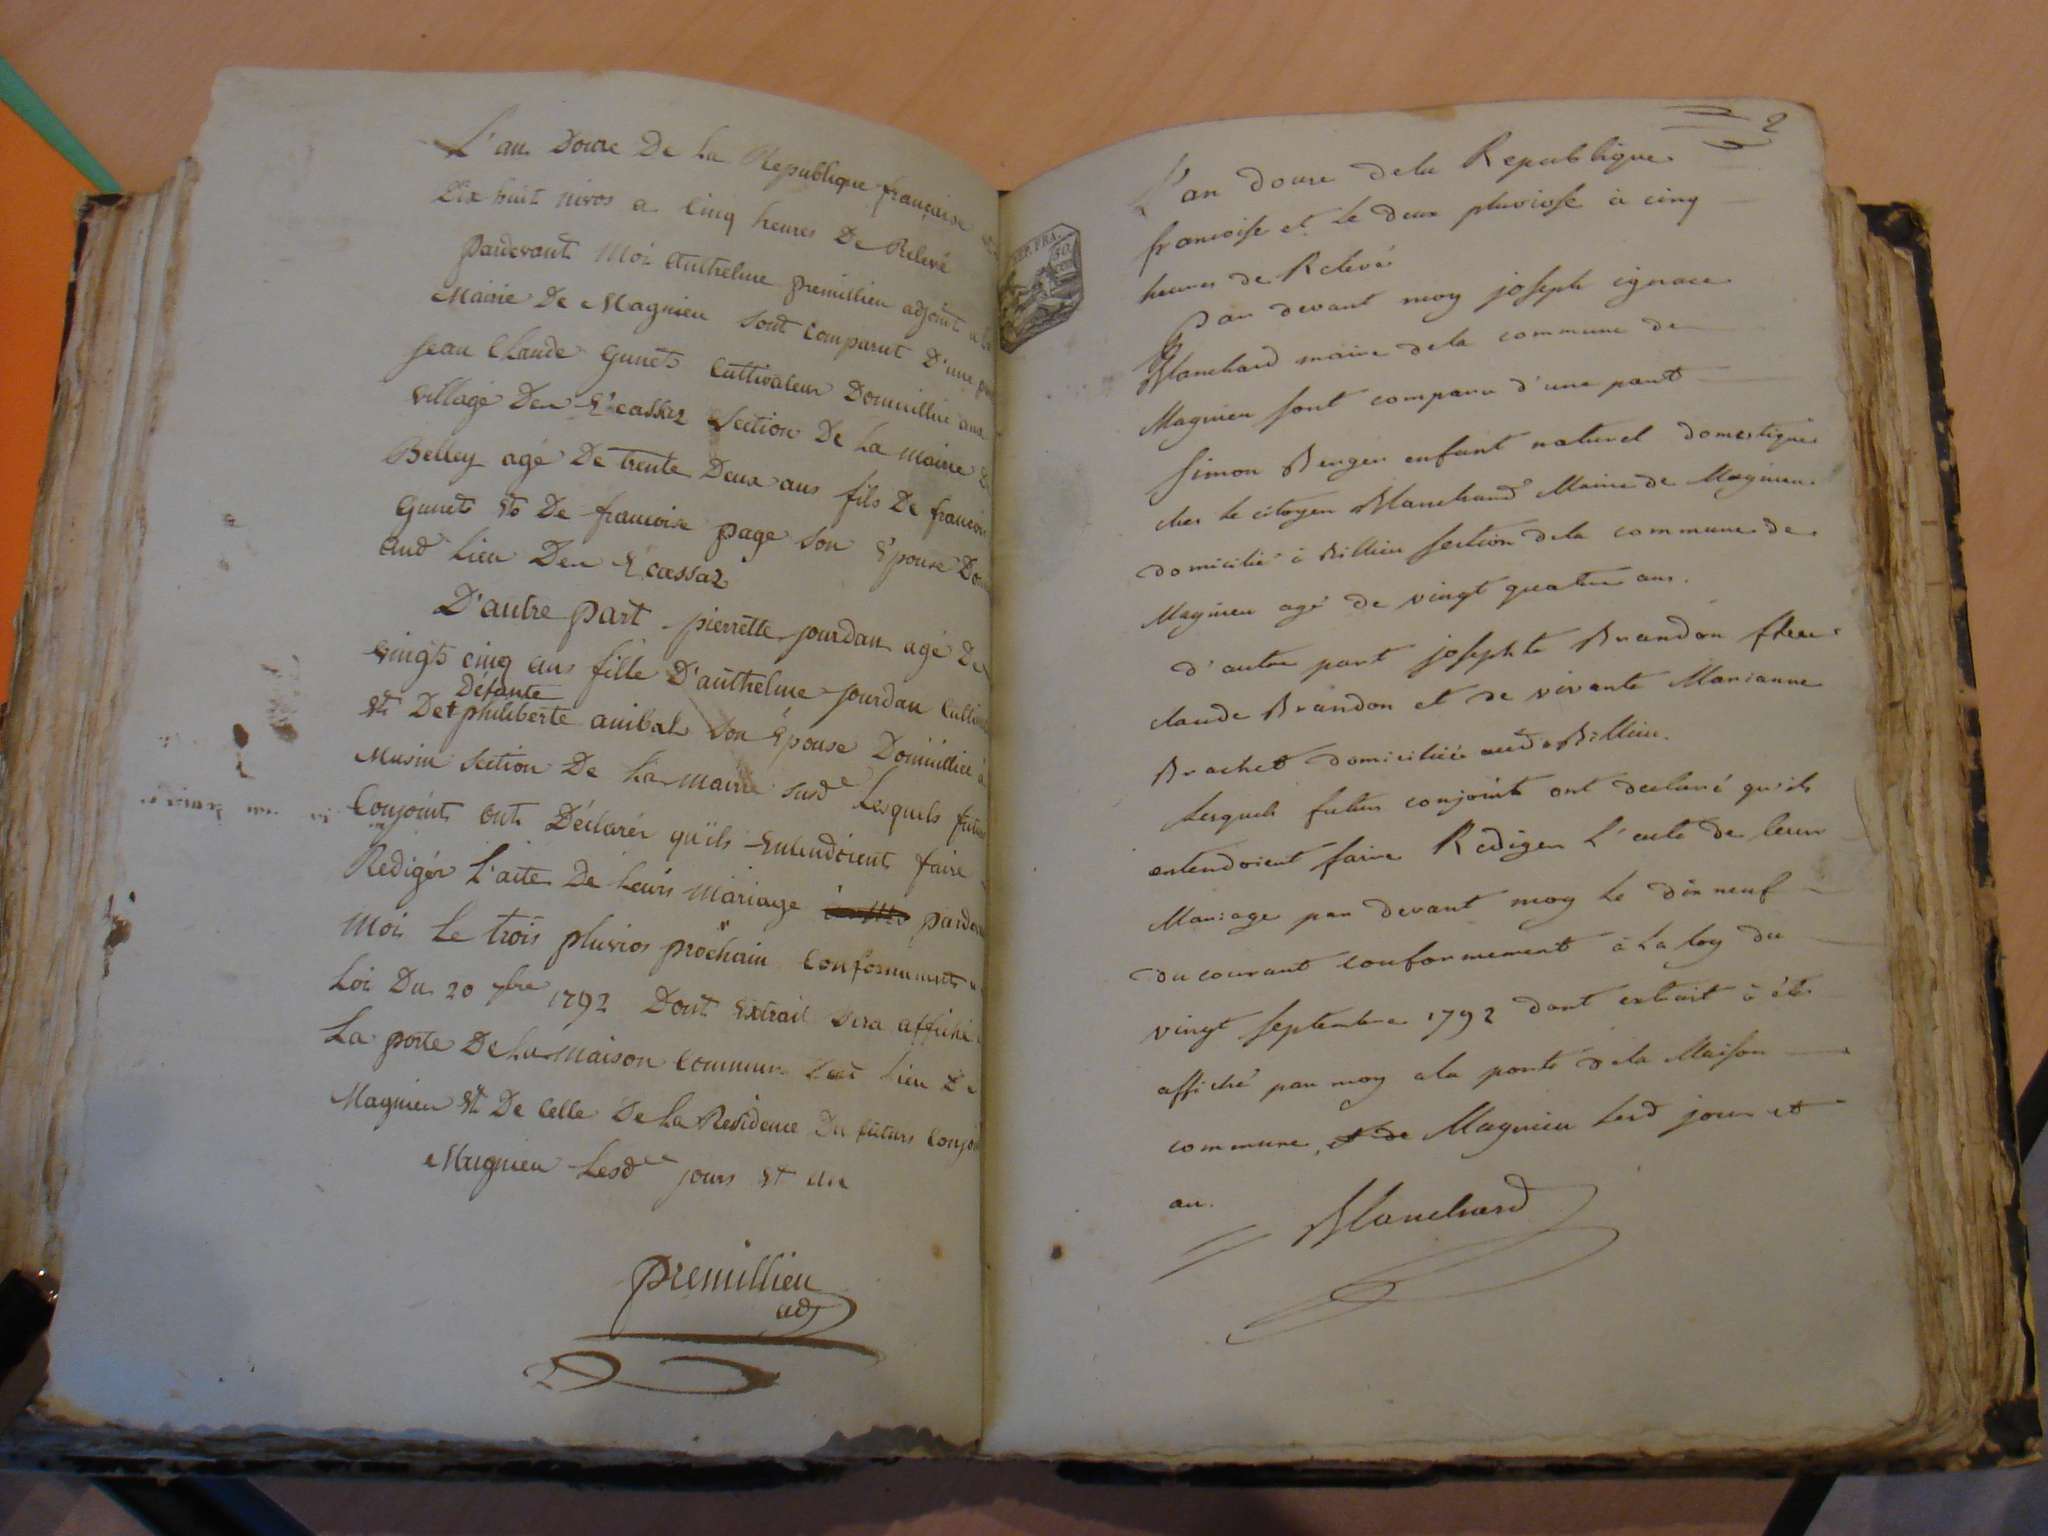 L'an Douze De La Republique française
Dix huit nivos a Cinq heures De Relevé
pardevant Moi Anthelme premillieu adjoint a la
Mairie De Magnieu sont Comparut D'une
Jean Claude Gunet Cultivateur Domicillié aux
village Den Ecassaz section De La mairie
Belley agé De trente Deux ans fils De francois
Gunet Et De francoise page son Epouse
aud Lieu Den Ecassaz
D'autre part pierrette jourdan agé De
vingt cinq ans fille D'anthelme jourdan
Défunte
Et De philiberte anibal son Epouse Domicilliée à
Musin section De La mairie susde Lesquels futurs
Conjoints ont Déclarér qu'ils Entendoient faire
Redigér L'acte De Leurs mariage
Moi Le trois pluvios prochain Conformement
Loi Du 20 7bre 1792 Dont Extrait sera affiché
La porte De La maison Commun Lieu De
Magnieu Et De Celle De La Residence Du futurs
Magnieu Lesde jours Et an
premillieu
adj
2
REP. FRA.
50
L'an douze de la Republique
francoise et le deux pluviose à cinq
heures de Relevé
Par devant moy joseph ignace
Blanchard maire de la commune de
Magnieu sont comparu d'une part
Simon Berger enfant naturel domestique
ches le citoyen Blanchard Maire de Magnieu
domicilié à Billieu section de la commune de
Magnieu agé de vingt quatre ans.
d'autre part josephte Brandon
claude Brandon et de vivante Marianne
Brachet domiciliée aud Billieu.
Lesquels futurs conjoints ont declaré qu'ils
entendoient faire Rediger L'acte de leur
Mariage par devant moy le dix neuf
du courant conformement à La loy du
vingt septembre 1792 dont extrait à été
affiché par moy a la porte de la Maison
commune, et de Magnieu Lesd jour et
an.
Blanchard